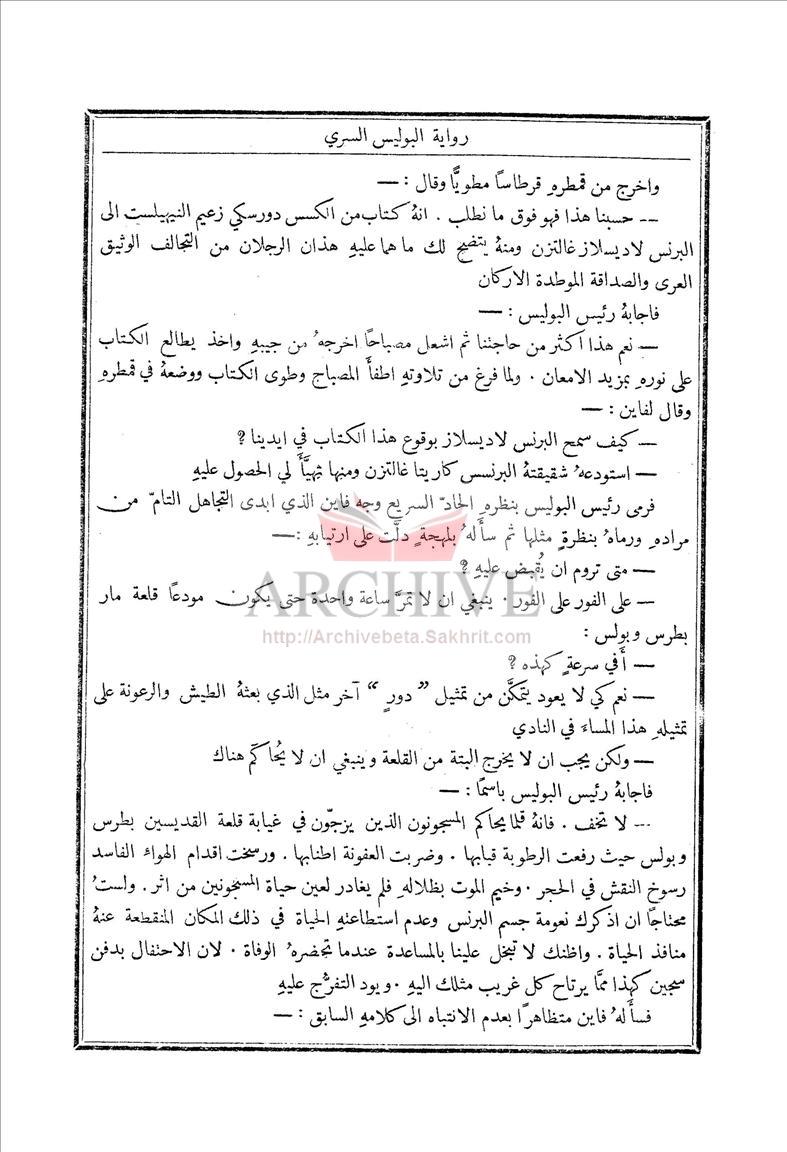 رواية البوليس السري
واخرج من قمطرهِ قرطاسًا مطويًّا وقال : —
-- حسبنا هذا فهو فوق ما نطلب . انهُ كتاب من الكسس دورسكي زعيم النيهيلست الى
البرنس لاديسلاز غالتزن ومنهُ يتضح لك ما هما عليهِ هذان الرجلان من التحالف الوثيق
العرى والصداقة الموطدة الاركان
فاجابهُ رئيس البوليس : —
— نعم هذا اكثر من حاجتنا ثم اشعل مصباحًا اخرجهُ من جيبهِ واخذ يطالع الكتاب
على نورهِ بمزيد الامعان . ولما فرغ من تلاوتهِ اطفأَ المصباح وطوى الكتاب ووضعهُ في قمطرهِ
وقال لفاين : —
— كيف سمح البرنس لاديسلاز بوقوع هذا الكتاب في ايدينا ؟
— استودعهُ شقيقتهُ البرنسس كاريتا غالتزن ومنها تهيَّأَ لي الحصول عليهِ
فرمى رئيس البوليس بنظرهِ الحادّ السريع وجه فاين الذي ابدى التجاهل التامّ من
مرادهِ ورماهُ بنظرةٍ مثلها ثم سأَلهُ بلهجةٍ دلَّت على ارتيابهِ : —
— متى تروم ان يُقبض عليهِ ؟
— على الفور على الفور . ينبغي ان لا تمرَّ ساعة واحدة حتى يكون مودعًا قلعة مار
بطرس وبولس :
— أَفي سرعةٍ كهذه ؟
— نعم كي لا يعود يتمكَّن من تمثيل ” دورٍ “ آخر مثل الذي بعثهُ الطيش والرعونة على
تمثيلهِ هذا المساءَ في النادي
— ولكن يجب ان لا يخرج البتة من القلعة وينبغي ان لا يُحاكَم هناك
فاجابهُ رئيس البوليس باسمًا : —
-- لا تخف . فانهُ قلما يحاكم المسجونون الذين يزجّون في غيابة قلعة القديسين بطرس
وبولس حيث رفعت الرطوبة قبابها . وضربت العفونة اطنابها . ورسخت اقدام الهواءِ الفاسد
رسوخ النقش في الحجر . وخيم الموت بظلالهِ فلم يغادر لعين حياة المسجونين من اثر . ولستُ
محتاجًا ان اذكرك نعومة جسم البرنس وعدم استطاعتهِ الحياة في ذلك المكان المنقطعة عنهُ
منافذ الحياة . واظنك لا تبخل علينا بالمساعدة عندما تحضرهُ الوفاة . لان الاحتفال بدفن
سجين كهذا ممَّا يرتاح كل غريب مثلك اليهِ . ويود التفرُّج عليهِ
فسأَلهُ فاين متظاهرًا بعدم الانتباه الى كلامهِ السابق : —
ARCHIVE
http://Archivebeta.Sakhrit.com